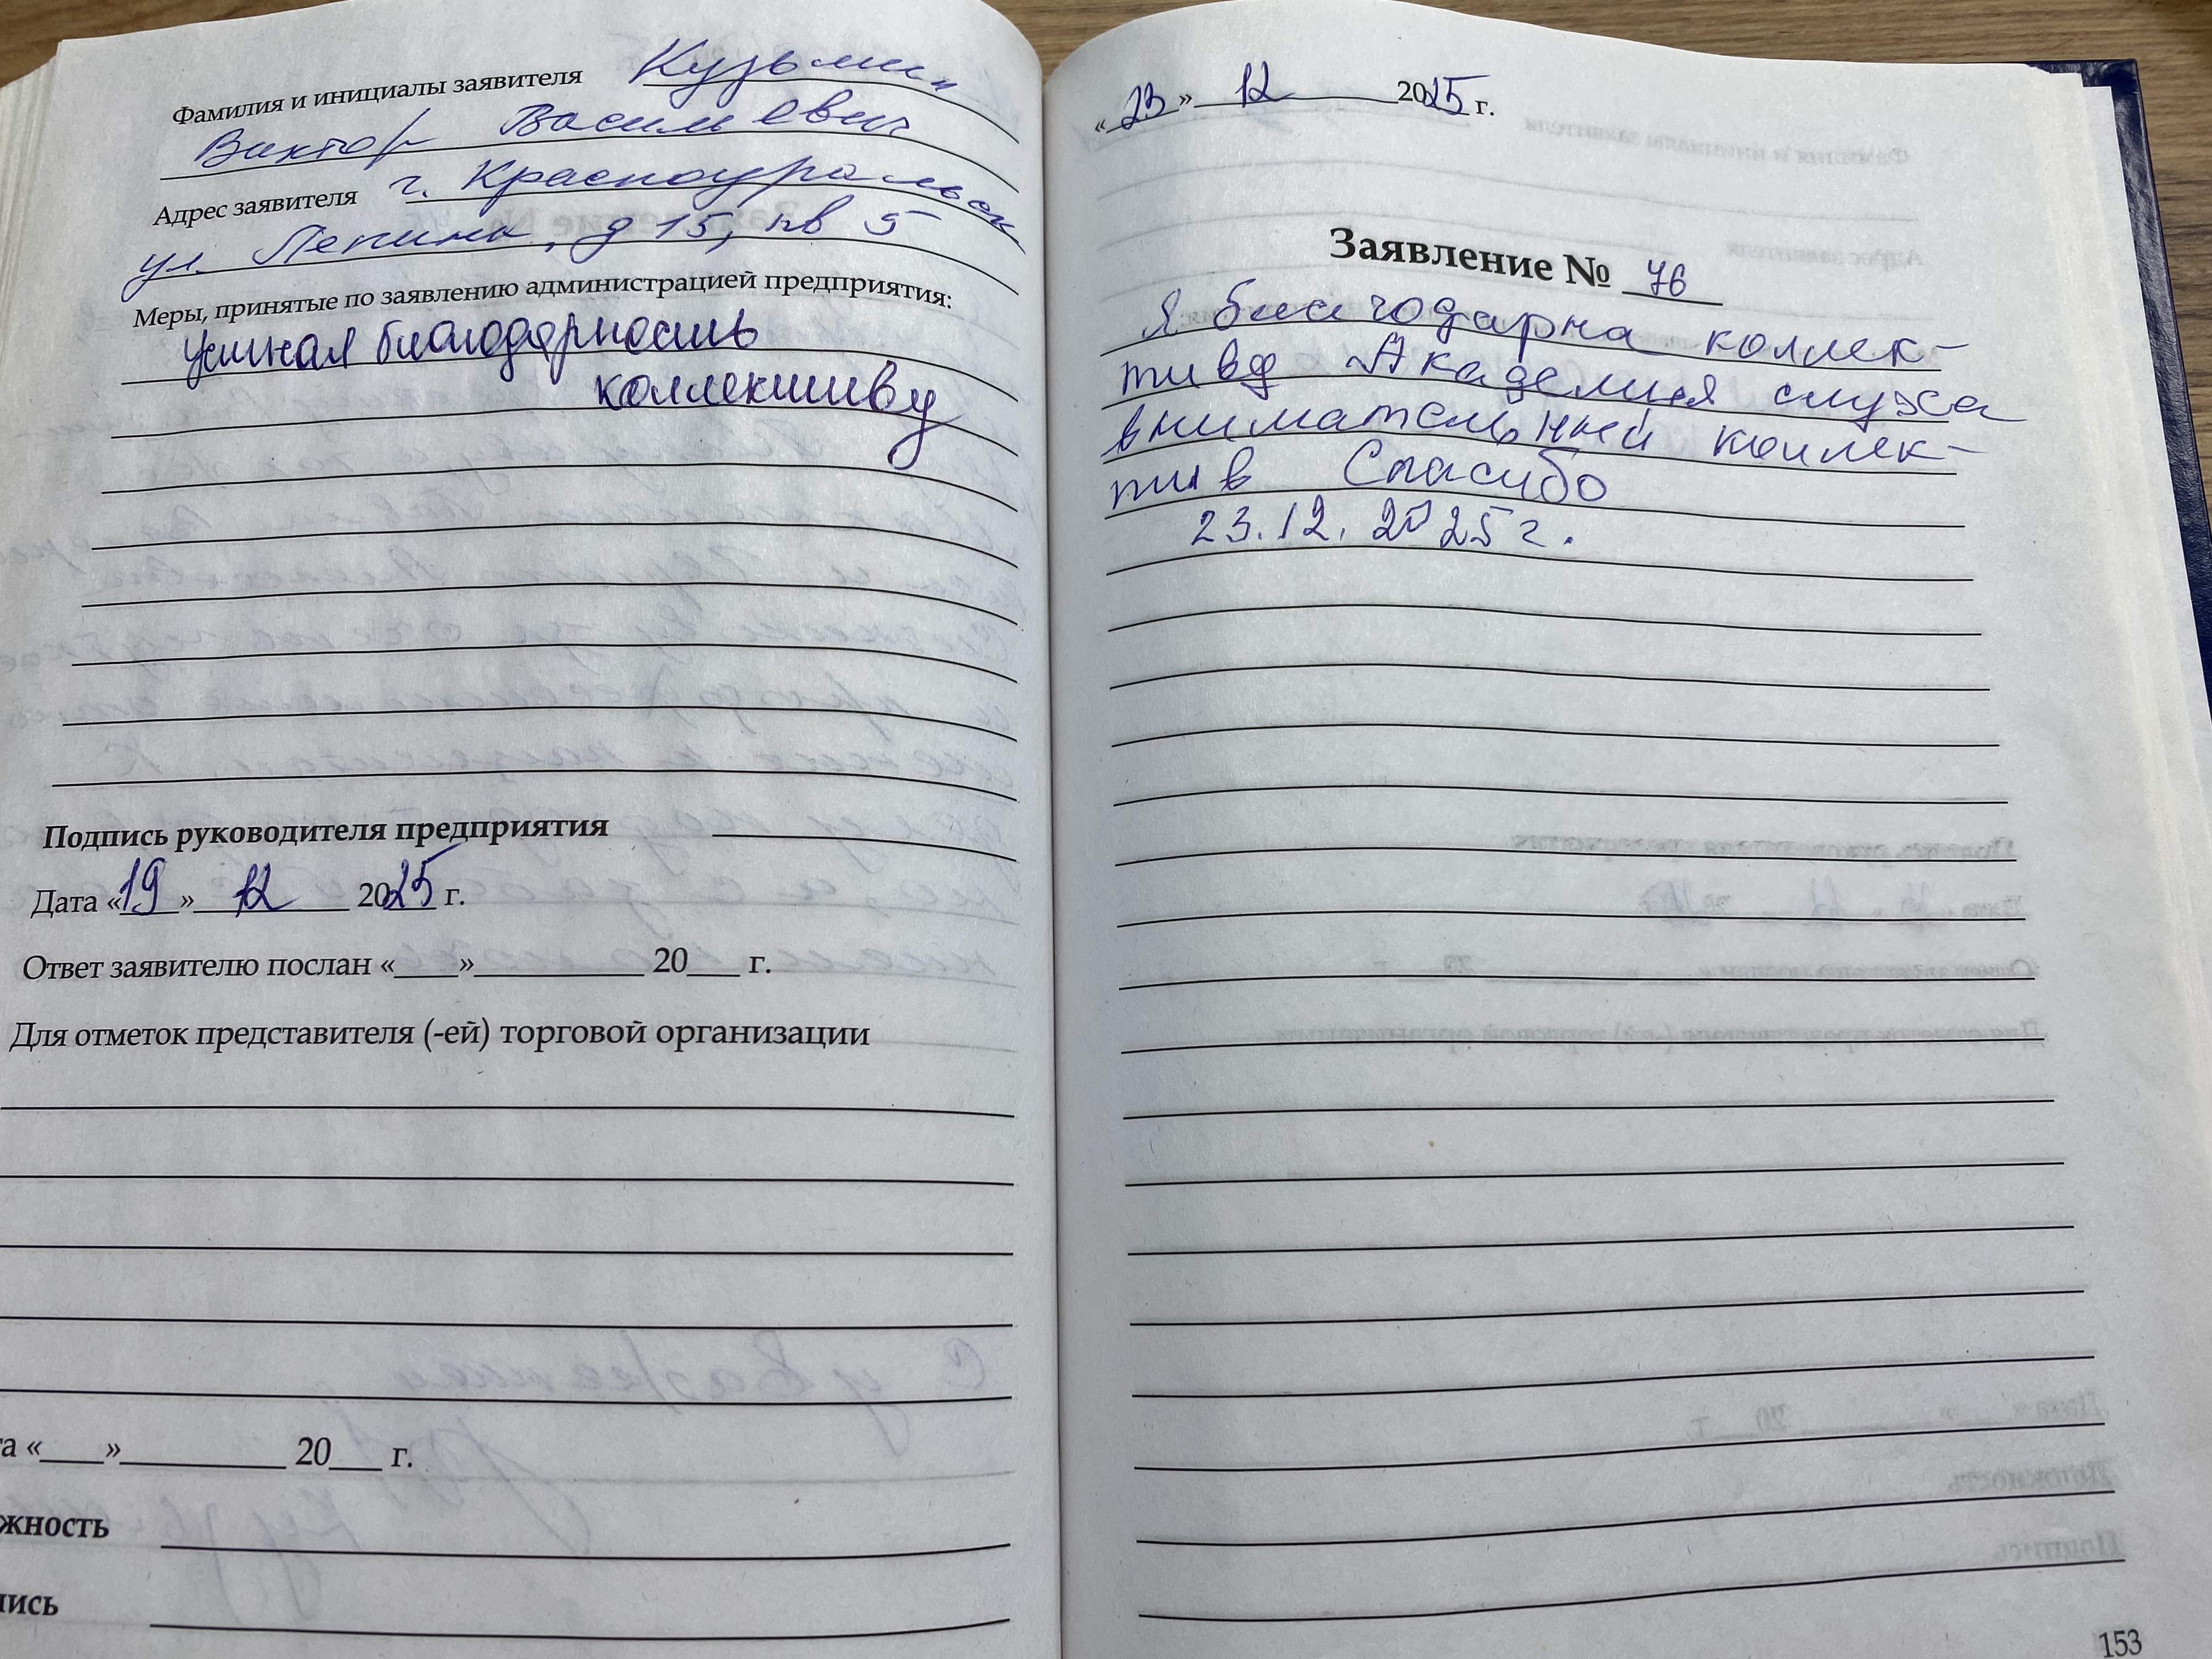 Фамилия и инициалы заявителя Кузьмин
Виктор Васильевич
Адрес заявителя г. Красноуральск
ул. Ленина, д 15, кв 5
Меры, принятые по заявлению администрацией предприятия:
Устная благодарность
коллективу
Подпись руководителя предприятия
Дата «19» 12 2025 г.
Ответ заявителю послан «___»________ 20___ г.
Для отметок представителя (-ей) торговой организации
та «___»________ 20___ г.
жность
пись
«23» 12 2025 г.
Заявление № 76
Я благодарна коллек-
тиву Академия слуха
внимательный коллек-
тив Спасибо
23.12.2025 г.
153